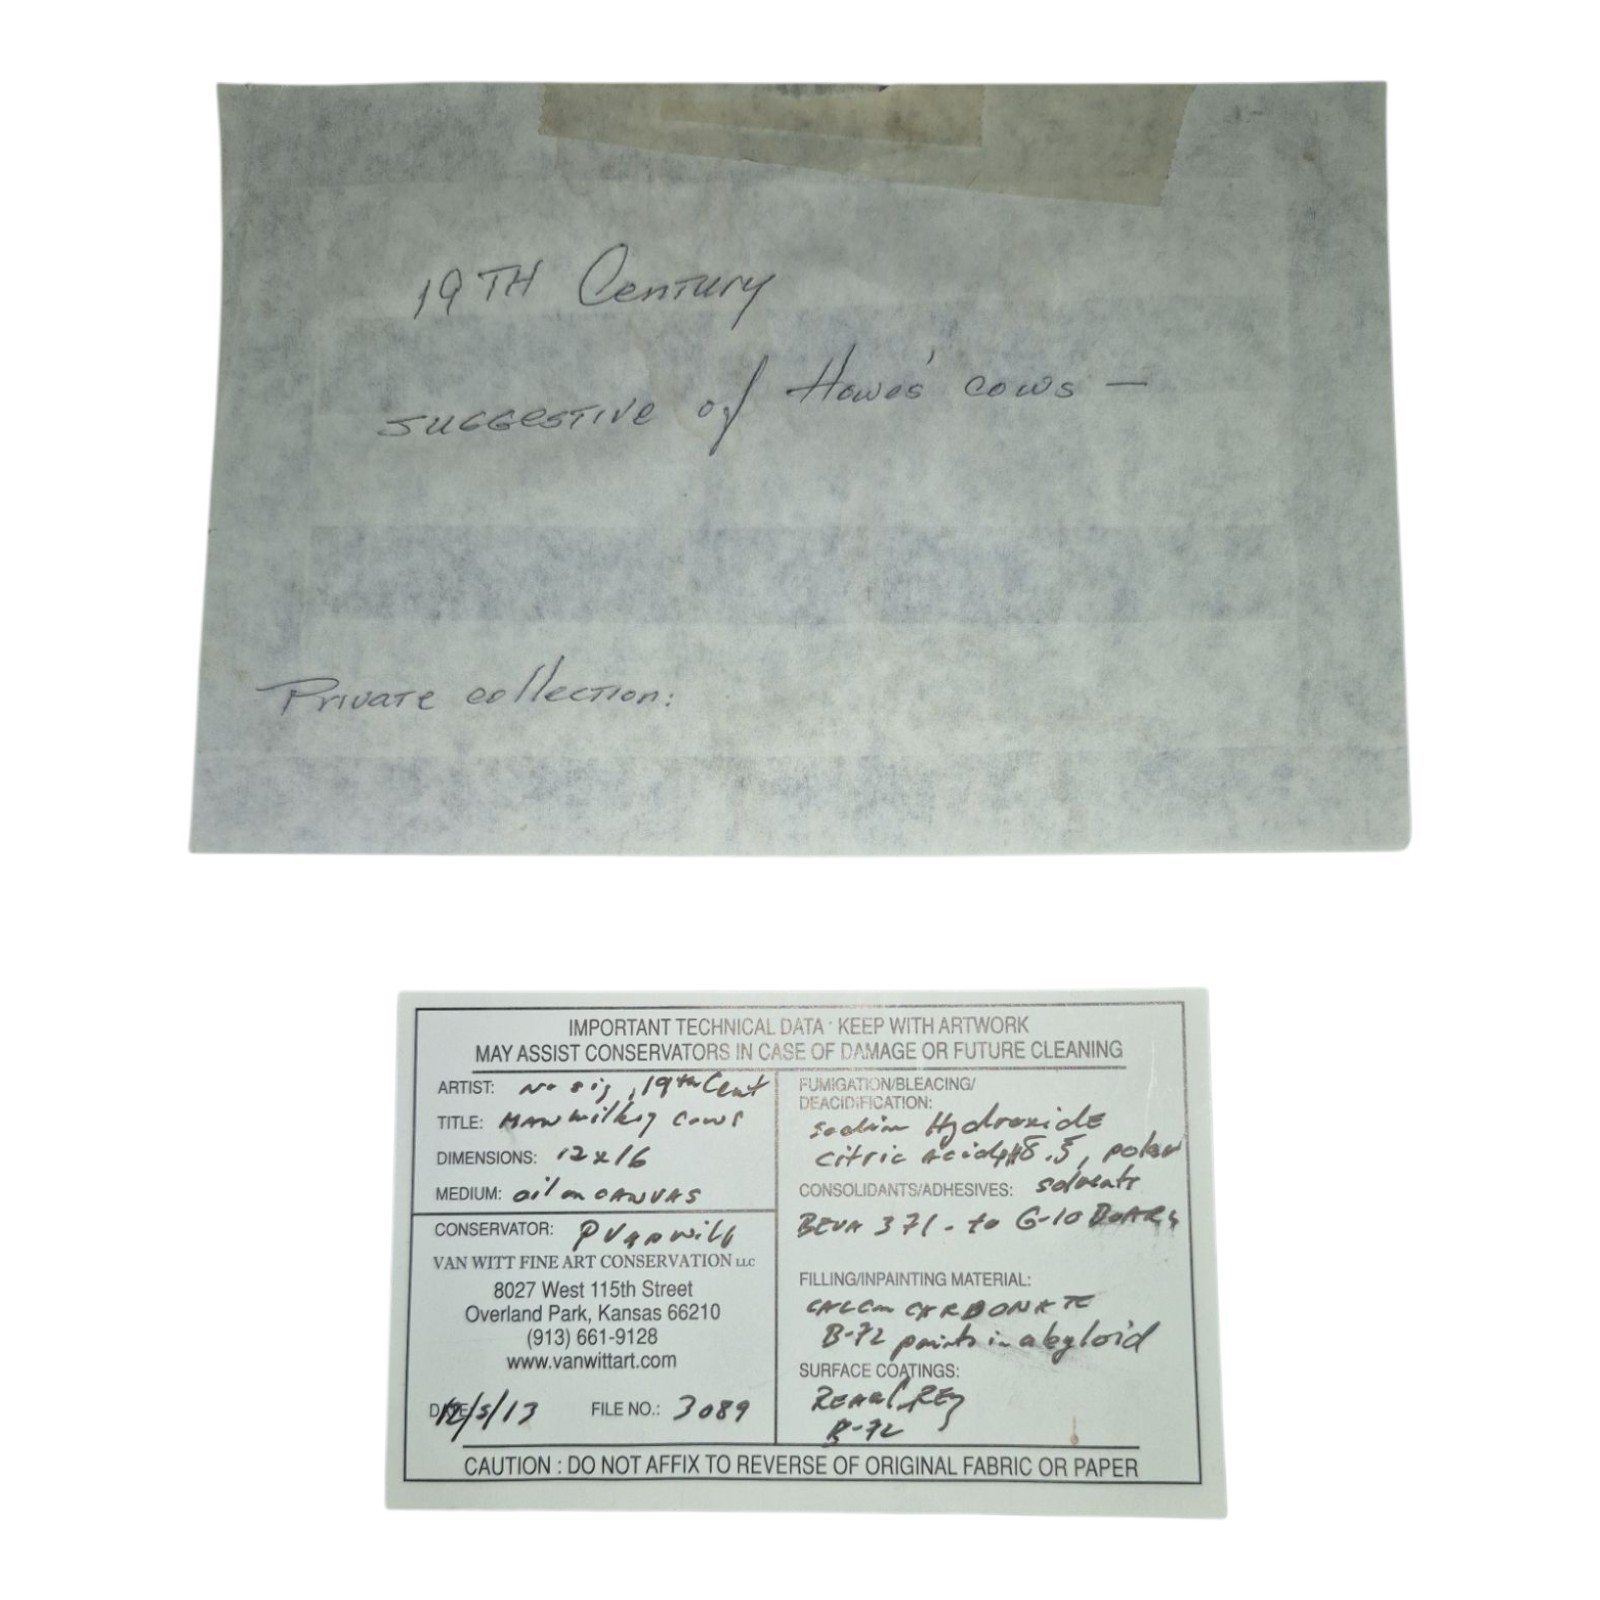 19TH Century
suggestive of Howe's cows —
Private collection:
IMPORTANT TECHNICAL DATA · KEEP WITH ARTWORK
MAY ASSIST CONSERVATORS IN CASE OF DAMAGE OR FUTURE CLEANING
ARTIST: No sig, 19th Cent
TITLE: MAN milking cows
DIMENSIONS: 12 x 16
MEDIUM: oil on CANVAS
CONSERVATOR: P Van Witt
VAN WITT FINE ART CONSERVATION LLC
8027 West 115th Street
Overland Park, Kansas 66210
(913) 661-9128
www.vanwittart.com
DATE 12/5/13 FILE NO.: 3089
FUMIGATION/BLEACING/
DEACIDIFICATION:
sodium Hydroxide
citric acid pH 8.5, polar
solvents
CONSOLIDANTS/ADHESIVES:
BEVA 371 - to G-10 BOARD
FILLING/INPAINTING MATERIAL:
CALCm CARBONATE
B-72 paints in
SURFACE COATINGS:
B-72
CAUTION : DO NOT AFFIX TO REVERSE OF ORIGINAL FABRIC OR PAPER